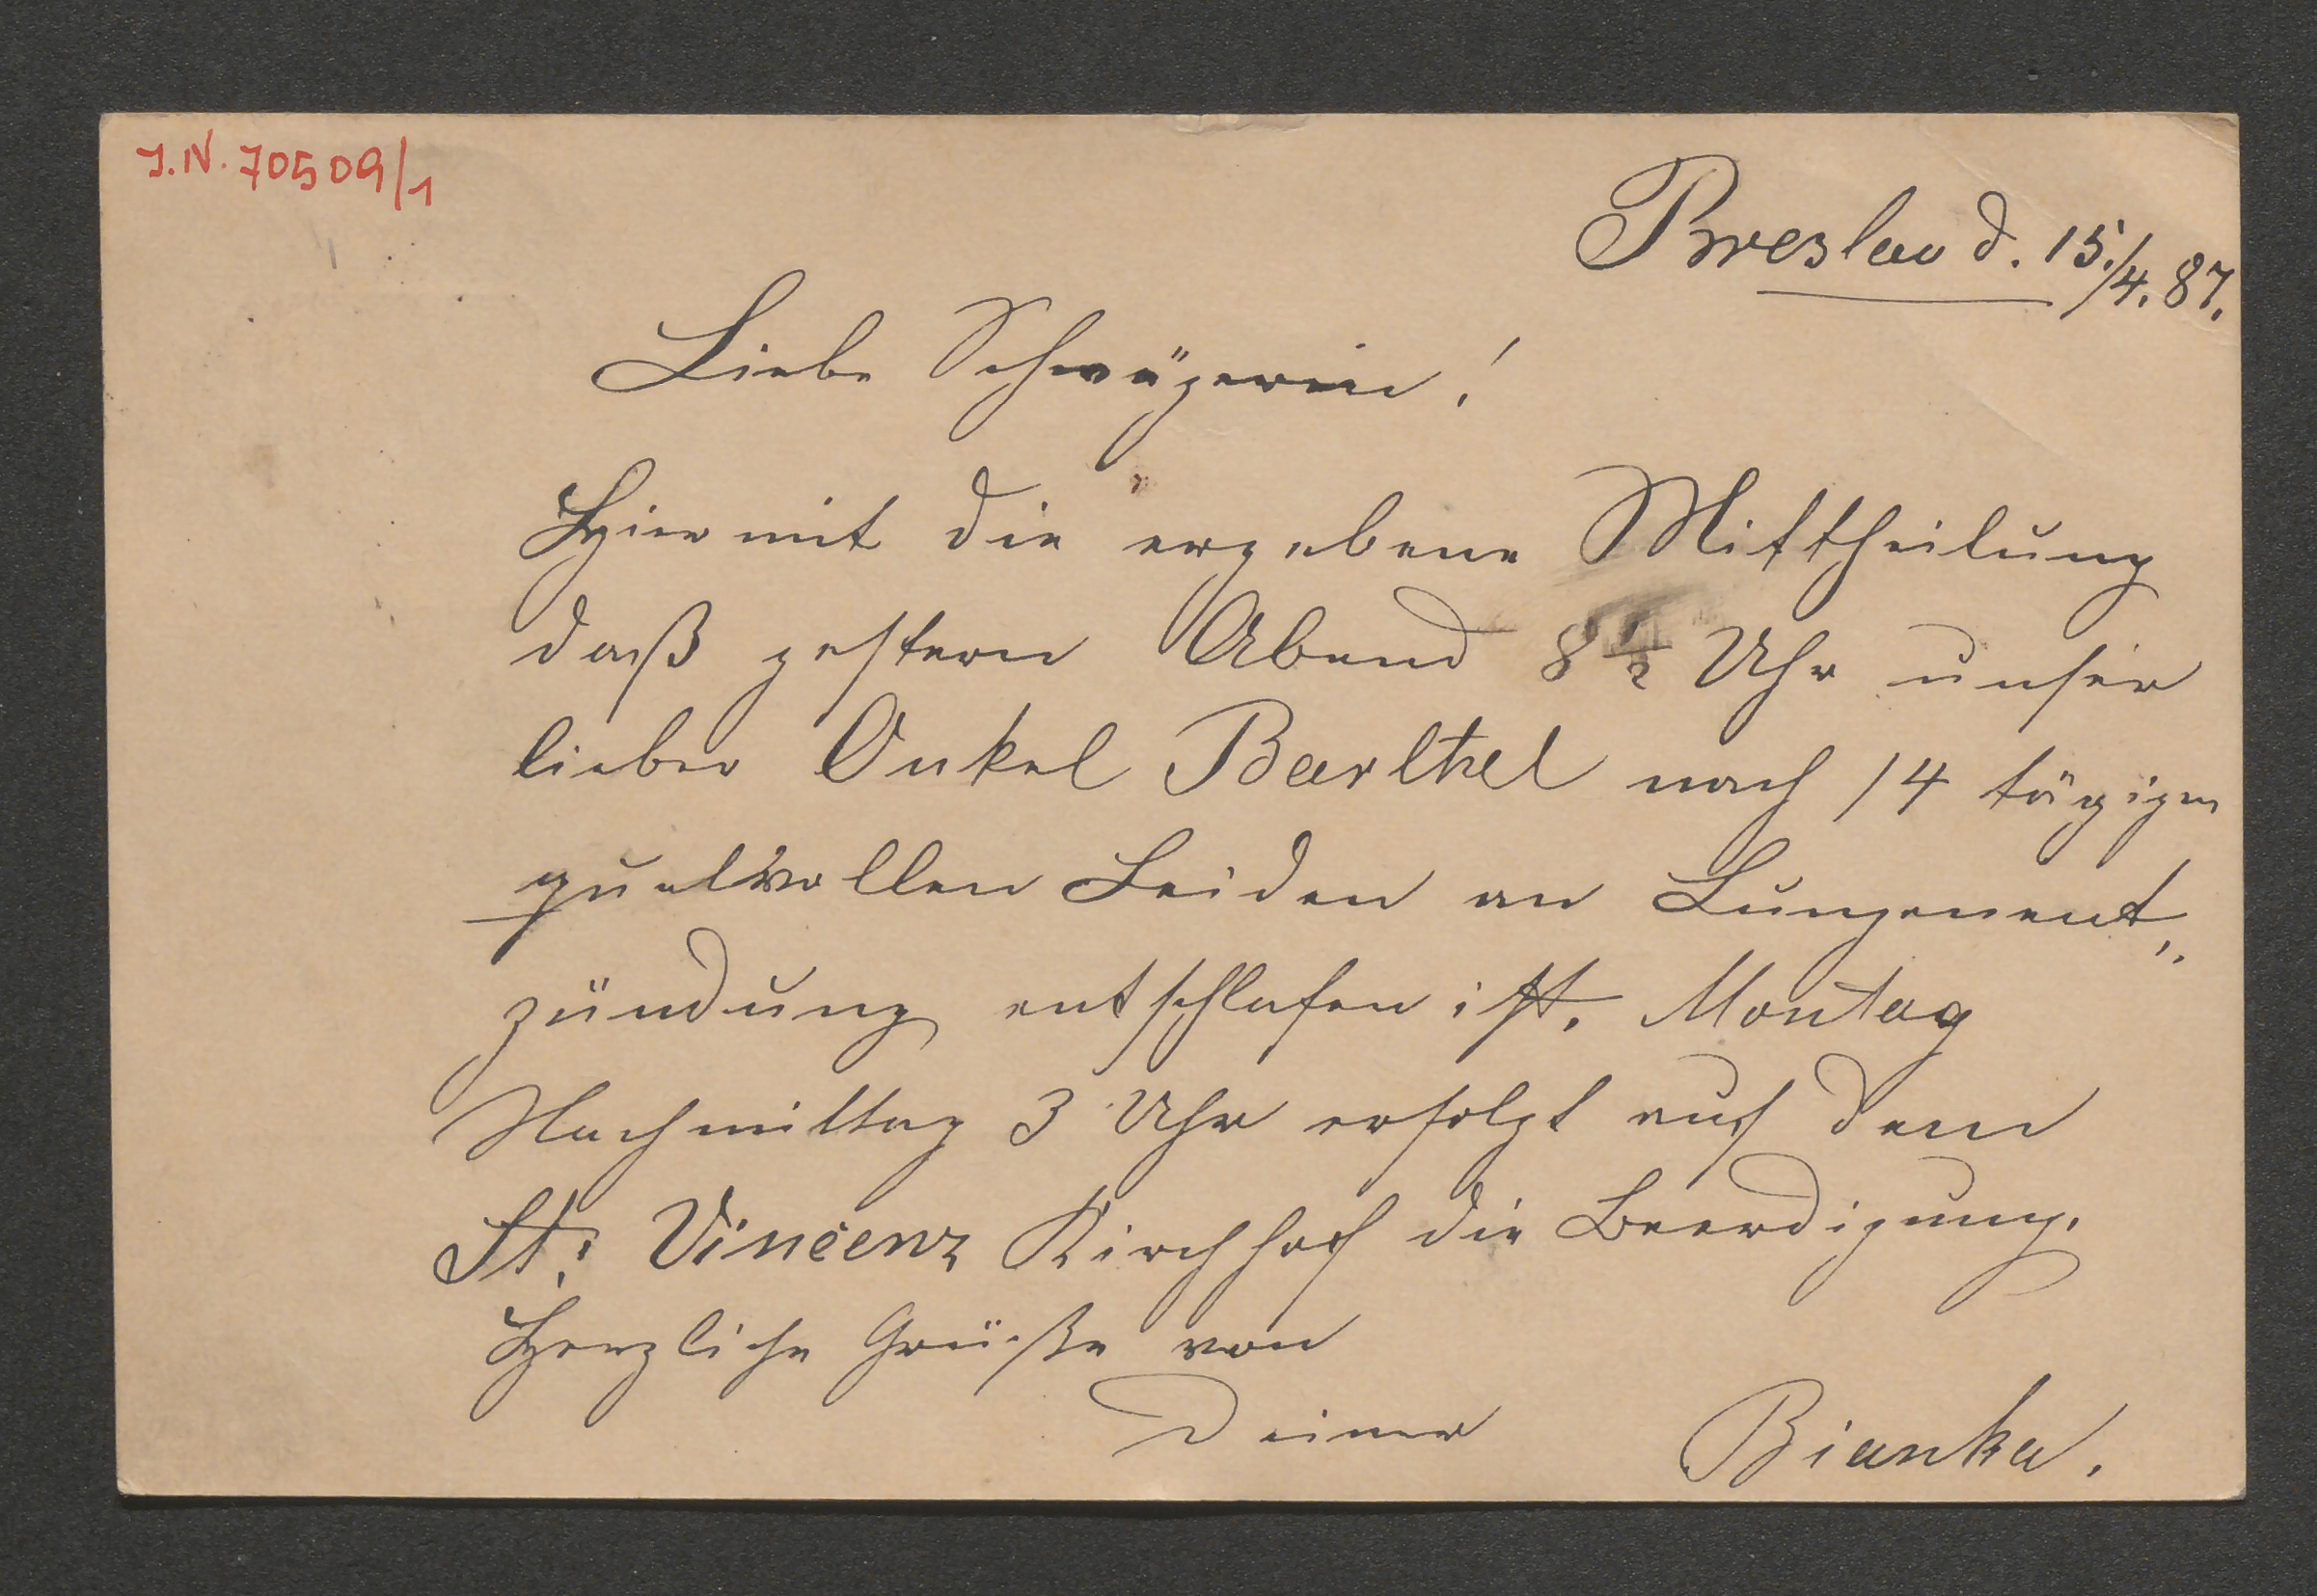 J.N. 70509/1
Breslau d. 15./4. 87.
Liebe Schwägerin!
Hiermit die ergebene Mittheilung
daß gestern Abend 8 1/2 Uhr unser
lieber Onkel Barthel nach 14 tägigen
qualvollen Leiden an Lungenent„
zündung entschlafen ist. Montag
Nachmittag 3 Uhr erfolgt auf dem
St. Vincenz Kirchhof die Beerdigung.
Herzliche Grüße von
Deiner Bianka.